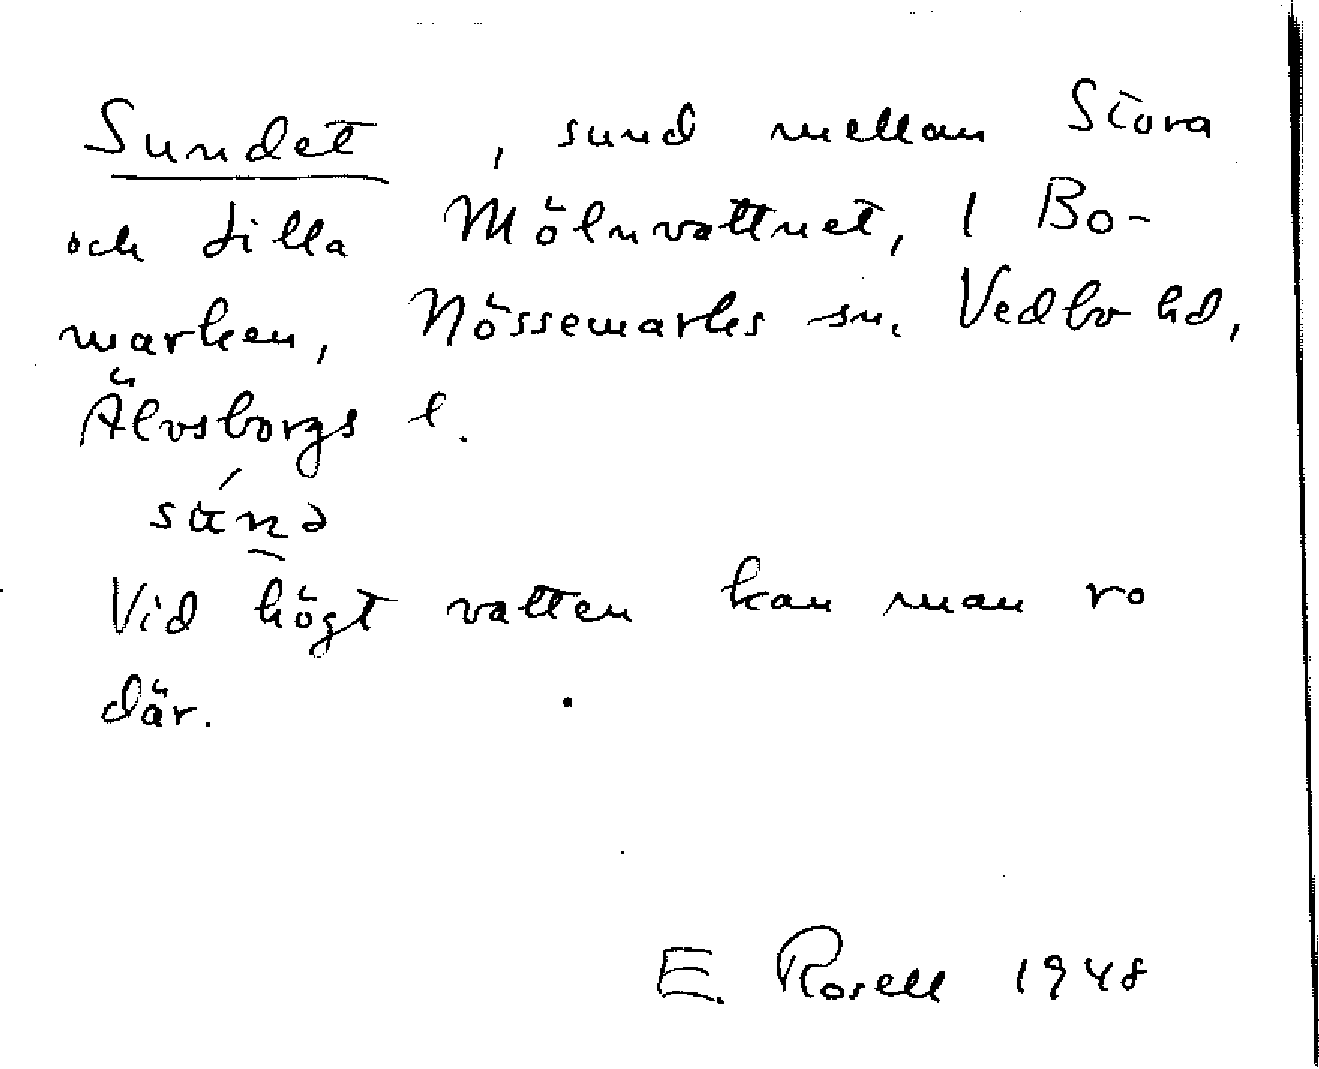 Sundet, sund mellan Stora
och Lilla Mölnvattnet, i Bo-
marken, Nössemarks sn. Vedbo hd,
Älvsborgs l.
Vid högt vatten kan man ro
där.
E. Rosell 1948